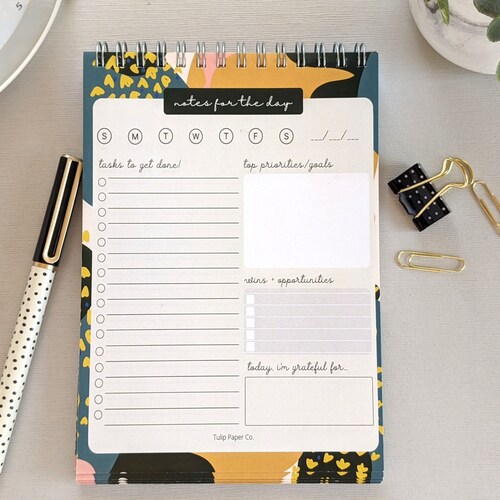 notes for the day
S M T W T F S __/__/__
tasks to get done!
top priorities/goals
wins + opportunities
today, i'm grateful for...
Tulip Paper Co.